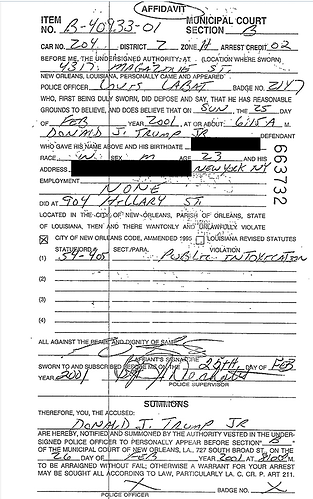 AFFIDAVIT
ITEM NO. B-40933-01 MUNICIPAL COURT SECTION B
CAR NO. 204 DISTRICT 7 ZONE H ARREST CREDIT 02
BEFORE ME, THE UNDERSIGNED AUTHORITY, AT (LOCATION WHERE SWORN)
4317 MAGAZINE ST.
NEW ORLEANS, LOUISIANA, PERSONALLY CAME AND APPEARED
POLICE OFFICER LOUIS LABAT BADGE NO. 2147
WHO, FIRST BEING DULY SWORN, DID DEPOSE AND SAY, THAT HE HAS REASONABLE
GROUNDS TO BELIEVE, AND DOES BELIEVE THAT ON SUN THE 25 DAY
OF FEB YEAR 2001 AT OR ABOUT 6:15 A M.
DONALD J. TRUMP JR DEFENDANT
WHO GAVE HIS NAME ABOVE AND HIS BIRTHDATE
RACE W SEX M AGE 23 AND HIS
ADDRESS NEW YORK NY
EMPLOYMENT NONE
DID AT 904 HILLARY ST
LOCATED IN THE CITY OF NEW ORLEANS, PARISH OF ORLEANS, STATE
OF LOUISIANA, THEN AND THERE WANTONLY AND UNLAWFULLY VIOLATE
CITY OF NEW ORLEANS CODE, AMMENDED 1995 LOUISIANA REVISED STATUTES
STATUTE/ORD SECT./PARA. VIOLATION
(1) 54-405 PUBLIC INTOXICATION
(2)
(3)
(4)
ALL AGAINST THE PEACE AND DIGNITY OF SAME
AFFIANT'S SIGNATURE
SWORN TO AND SUBSCRIBED BEFORE ME ON THE 25TH DAY OF FEB
YEAR 2001
POLICE SUPERVISOR
663732
SUMMONS
THEREFORE, YOU, THE ACCUSED:
DONALD J. TRUMP JR
ARE HEREBY, NOTIFIED AND SUMMONED BY THE AUTHORITY VESTED IN THE UNDER-
SIGNED POLICE OFFICER TO PERSONALLY APPEAR BEFORE SECTION "B"
OF THE MUNICIPAL COURT OF NEW ORLEANS, LA., 727 SOUTH BROAD ST. ON THE
26 DAY OF FEB YEAR 2001 AT M.
TO BE ARRAIGNED WITHOUT FAIL; OTHERWISE A WARRANT FOR YOUR ARREST
MAY BE SOUGHT ALL ACCORDING TO LAW, PARTICULARLY LA. C. CR. P. ART 211.
X X
POLICE OFFICER BADGE NO.